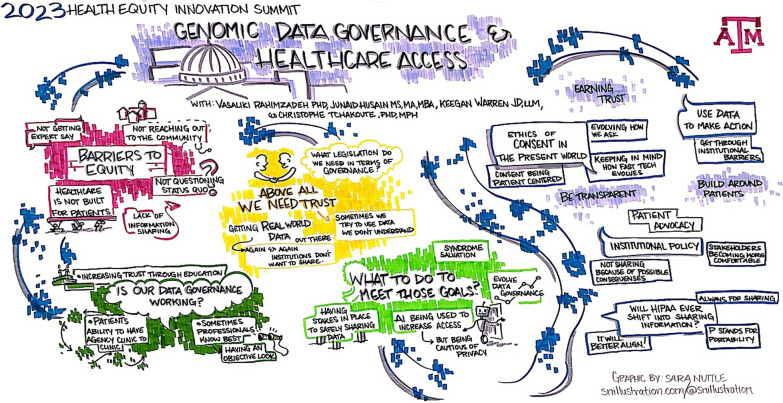 2023 HEALTH EQUITY INNOVATION SUMMIT
GENOMIC DATA GOVERNANCE &
HEALTHCARE ACCESS
WITH: VASALIKI RAHIMZADEH PHD, JUNAID HUSAIN MS, MA, MBA, KEEGAN WARREN JD, LLM,
& CHRISTOPHE TCHAKOUTE, PHD, MPH
ATM
NOT GETTING
EXPERT SAY
NOT REACHING OUT
TO THE COMMUNITY
BARRIERS TO
EQUITY
NOT QUESTIONING
STATUS QUO?
HEALTHCARE
IS NOT BUILT
FOR PATIENTS
LACK OF
INFORMATION
SHARING
INCREASING TRUST THROUGH EDUCATION
IS OUR DATA GOVERNANCE
WORKING?
PATIENTS
ABILITY TO HAVE
AGENCY CLINIC TO
CLINIC
SOMETIMES
PROFESSIONALS
KNOW BEST
HAVING AN
OBJECTIVE LOOK
WHAT LEGISLATION DO
WE NEED IN TERMS OF
GOVERNANCE?
ABOVE ALL
WE NEED TRUST
GETTING REAL WORLD
DATA OUT THERE
SOMETIMES WE
TRY TO USE DATA
WE DON'T UNDERSTAND
AGAIN & AGAIN
INSTITUTIONS DON'T
WANT TO SHARE.
SYNDROME
SALVATION
WHAT TO DO TO
MEET THOSE GOALS?
EVOLVE
DATA
GOVERNANCE
HAVING
STAKES IN PLACE
TO SAFELY SHARING
DATA
AI BEING USED TO
INCREASE ACCESS
BUT BEING
CAUTIOUS OF
PRIVACY
EARNING
TRUST
ETHICS OF
CONSENT IN
THE PRESENT WORLD
EVOLVING HOW
WE ASK
KEEPING IN MIND
HOW FAST TECH
EVOLVES
CONSENT BEING
PATIENT CENTERED
USE DATA
TO MAKE ACTION
GET THROUGH
INSTITUTIONAL
BARRIERS
BE TRANSPARENT
BUILD AROUND
PATIENTS
PATIENT
ADVOCACY
INSTITUTIONAL POLICY
STAKEHOLDERS
BECOMING MORE
COMFORTABLE
NOT SHARING
BECAUSE OF POSSIBLE
CONSEQUENSES
ALWAYS FOR SHARING
WILL HIPAA EVER
SHIFT INTO SHARING
INFORMATION?
P STANDS FOR
PORTABILITY
IT WILL
BETTER ALIGN!
GRAPHIC BY: SARA NUTTLE
snillustration.com/@snillustration